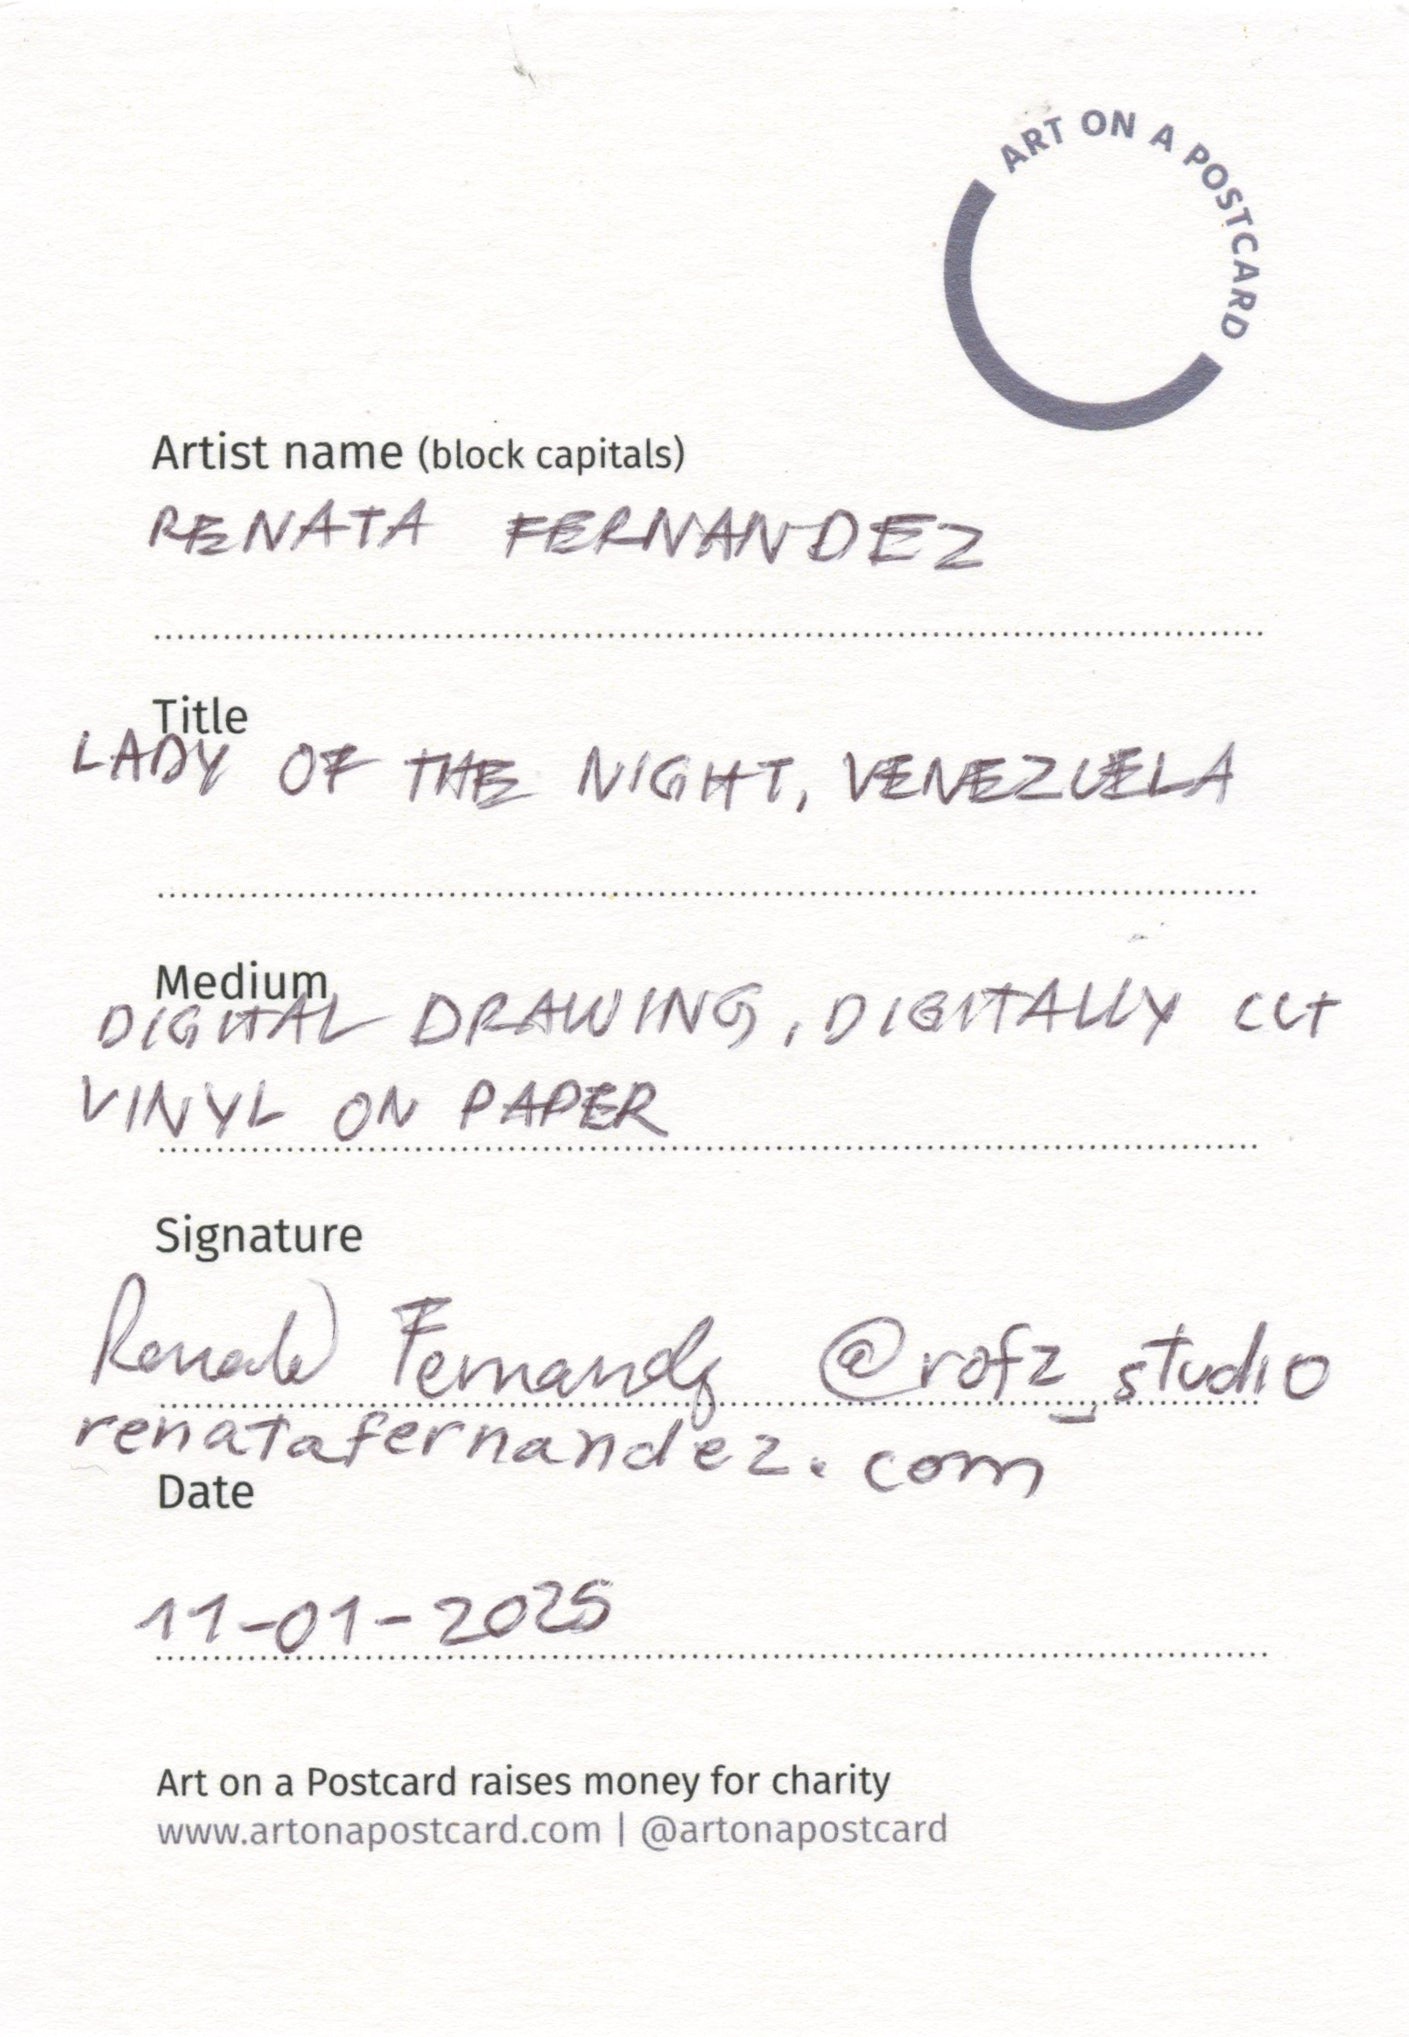 ART ON A POSTCARD
Artist name (block capitals)
RENATA FERNANDEZ
Title
LADY OF THE NIGHT, VENEZUELA
Medium
DIGITAL DRAWING, DIGITALLY CUT
VINYL ON PAPER
Signature
Renata Fernandez @rofz_studio
renatafernandez.com
Date
11-01-2025
Art on a Postcard raises money for charity
www.artonapostcard.com | @artonapostcard